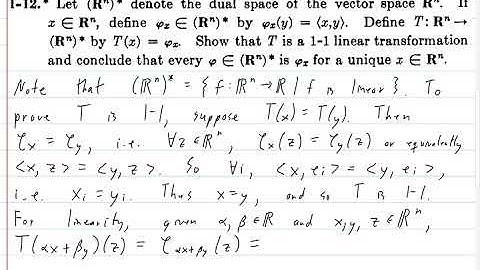 1-12.* Let (Rⁿ)* denote the dual space of the vector space Rⁿ. If
x ∈ Rⁿ, define φₓ ∈ (Rⁿ)* by φₓ(y) = ⟨x,y⟩. Define T: Rⁿ →
(Rⁿ)* by T(x) = φₓ. Show that T is a 1-1 linear transformation
and conclude that every φ ∈ (Rⁿ)* is φₓ for a unique x ∈ Rⁿ.
Note that (ℝⁿ)* = {f: ℝⁿ → ℝ | f is linear}. To
prove T is 1-1, suppose T(x) = T(y). Then
φₓ = φ_y, i.e. ∀z ∈ ℝⁿ, φₓ(z) = φ_y(z) or equivalently
<x, z> = <y, z>. So ∀i, <x, eᵢ> = <y, eᵢ>,
i.e. xᵢ = yᵢ. Thus x = y, and so T is 1-1.
For linearity, given α, β ∈ ℝ and x, y, z ∈ ℝⁿ,
T(αx + βy)(z) = φ_{αx+βy}(z) =